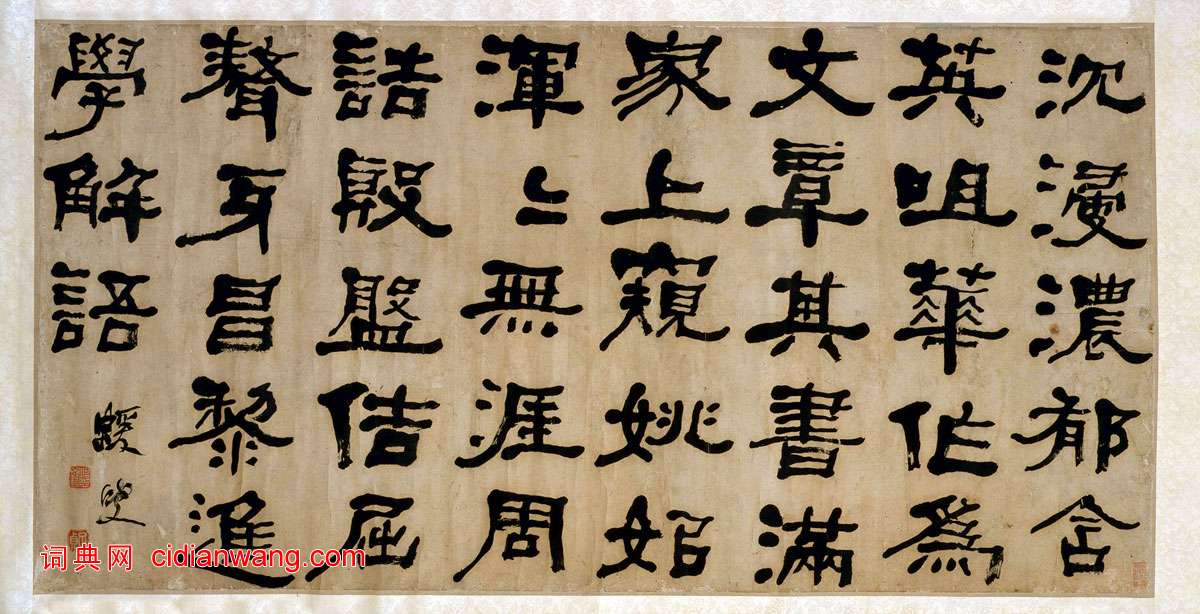 沈浸濃郁含
英咀華作爲
文章其書滿
家上窺姚姒
渾〻無涯周
誥殷盤佶屈
聱牙昌黎進
學解語
蝯叟
词典网 cidianwang.com